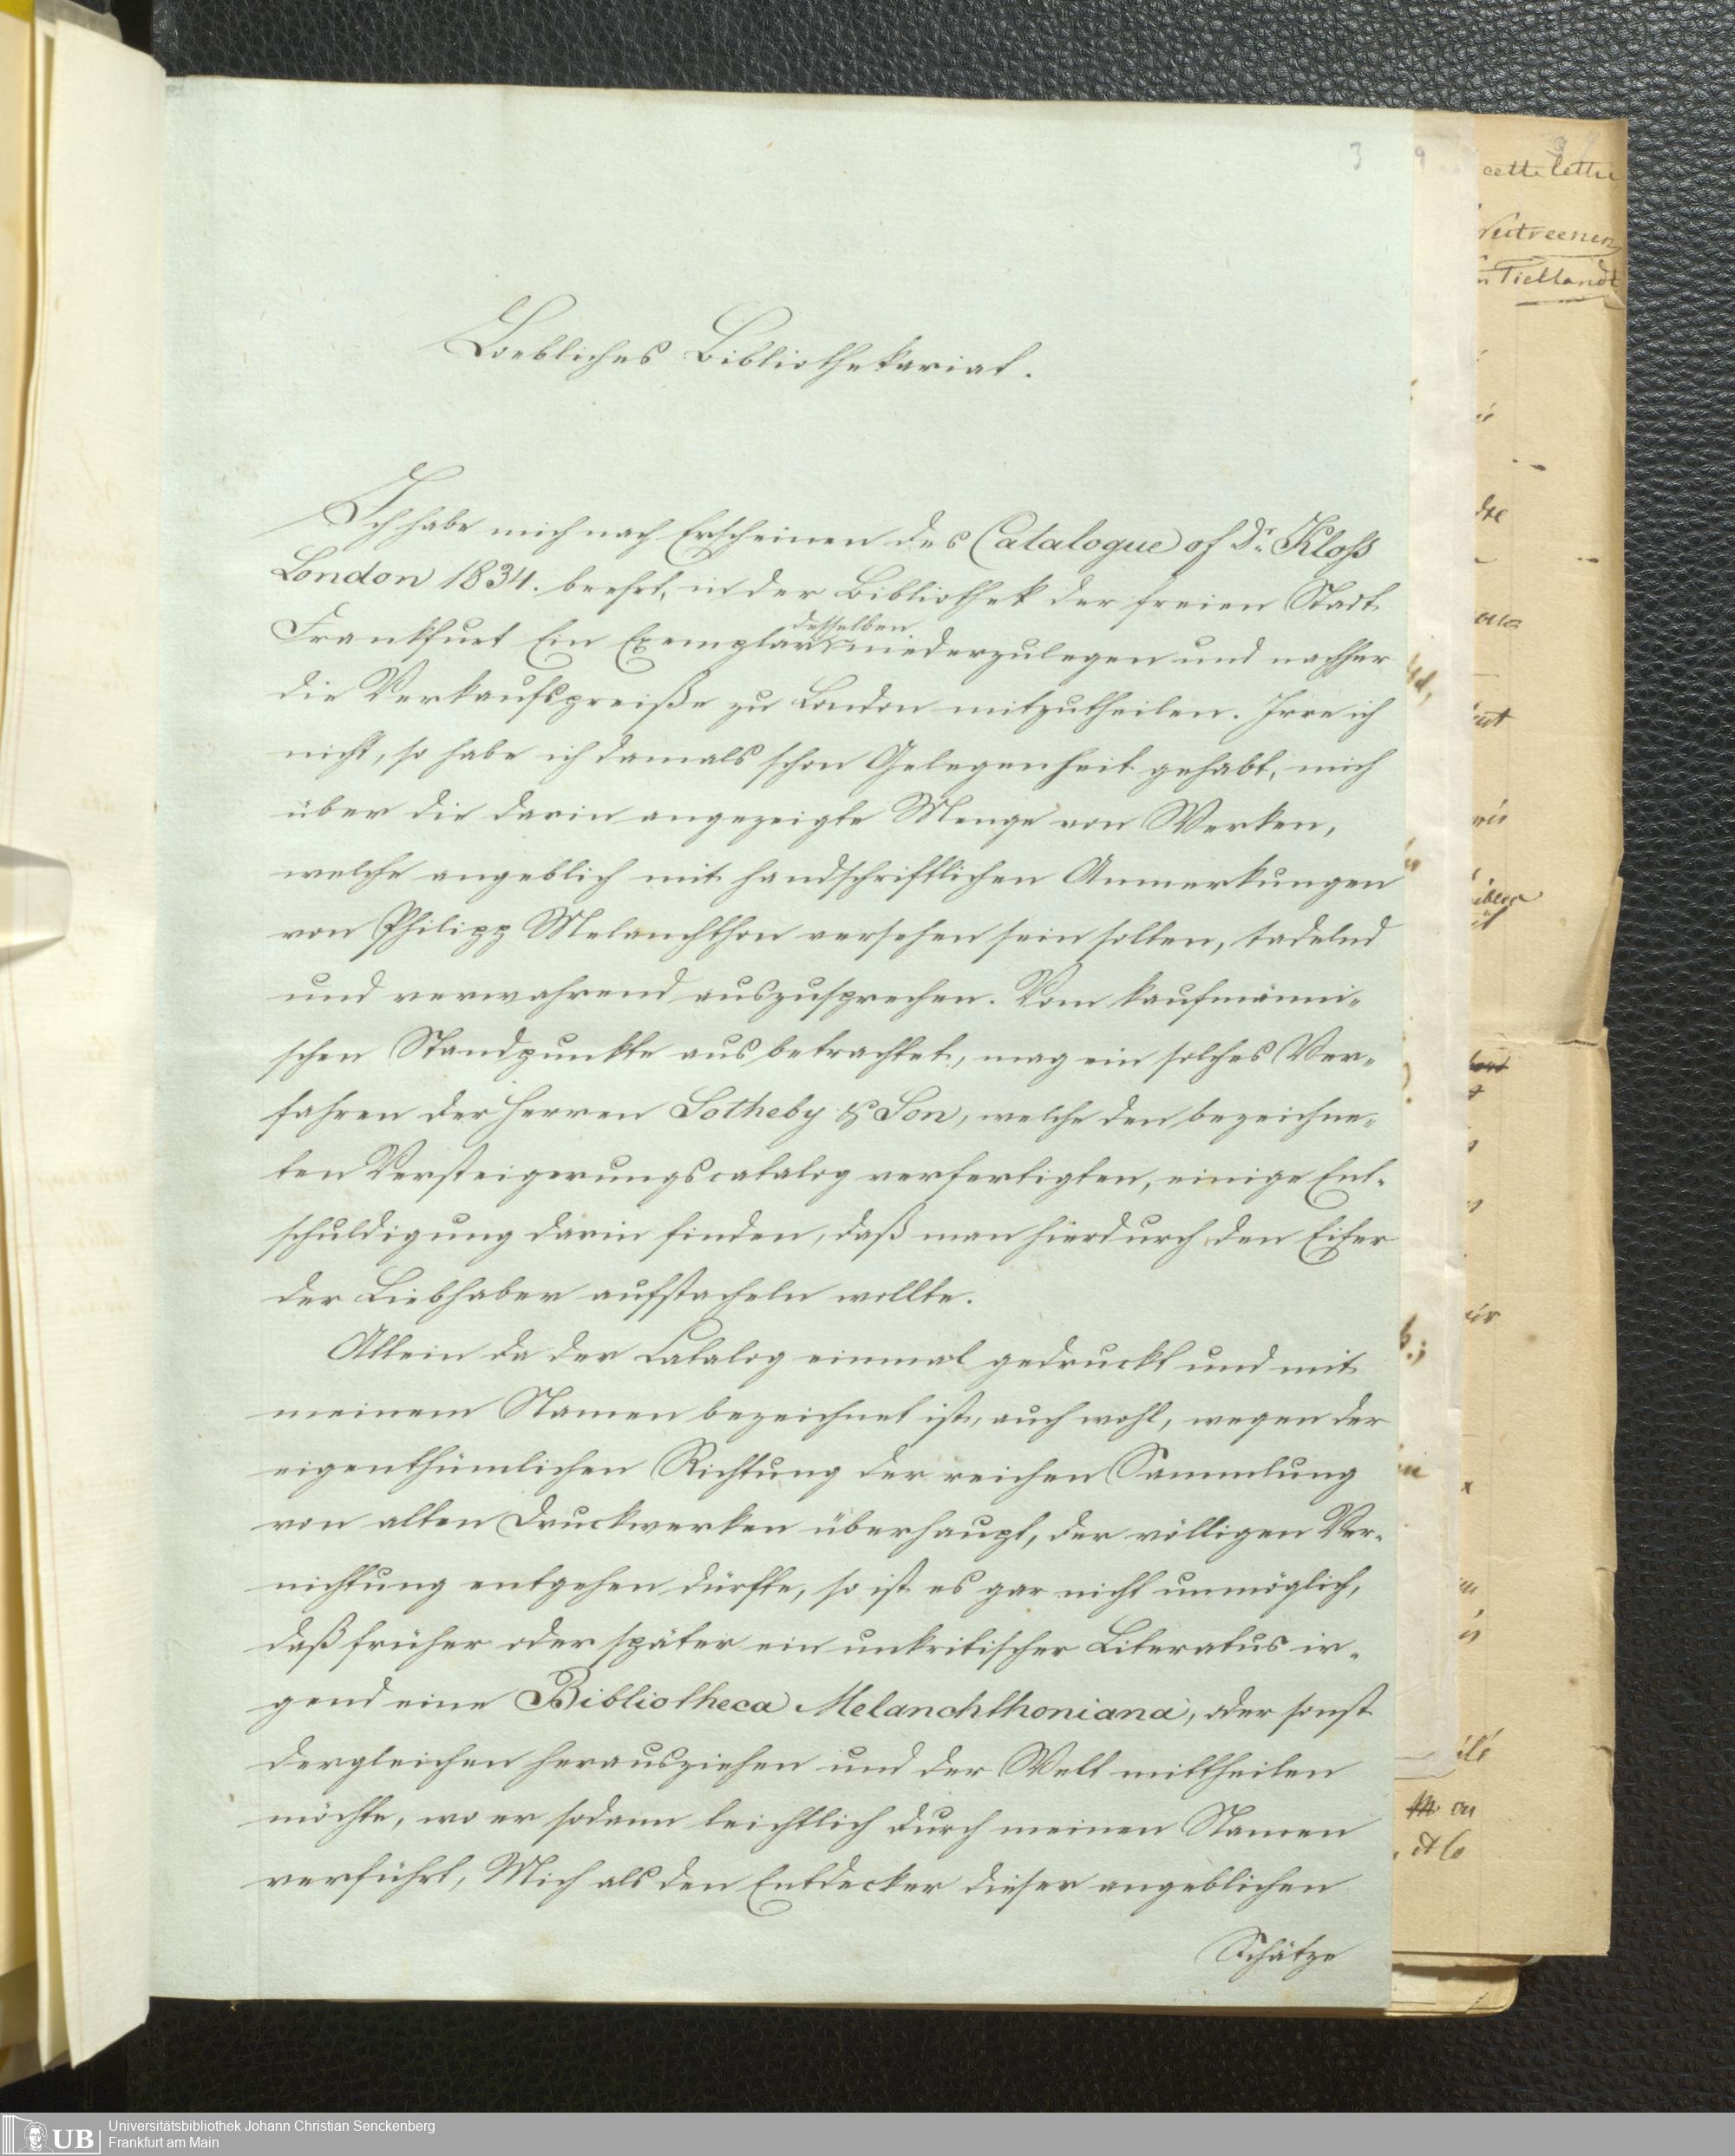 3
9
cette lettre
Loebliches Bibliothekariat.
Ich habe mich nach Erscheinen des Catalogue of Dr. Kloß
London 1834. beehrt, in der Bibliothek der freien Stadt
Frankfurt Ein Exemplar desselben niederzulegen und nachher
die Verkaufspreiße zu London mitzutheilen. Irre ich
nicht, so habe ich damals schon Gelegenheit gehabt, mich
über die darin angezeigte Menge von Werken,
welche angeblich mit handschriftlichen Anmerkungen
von Philipp Melanchthon versehen sein sollen, tadelnd
und verwahrend auszusprechen. Vom kaufmänni-
schen Standpunkte aus betrachtet, mag ein solches Ver-
fahren der Herren Sotheby & Son, welche den bezeichne-
ten Versteigerungscatalog verfertigten, einige Ent-
schuldigung darin finden, daß man hierdurch den Eifer
der Liebhaber aufstacheln wollte.
Allein da der Catalog einmal gedruckt und mit
meinem Namen bezeichnet ist, auch wohl, wegen der
eigenthümlichen Richtung der reichen Sammlung
von alten Druckwerken überhaupt, der völligen Ver-
nichtung entgehen dürfte, so ist es gar nicht unmöglich,
daß früher oder später ein unkritischer Literatus ir-
gend eine Bibliotheca Melanchthoniana, oder sonst
dergleichen herausziehen und der Welt mittheilen
möchte, wo er sodann leichtlich durch meinen Namen
verführt, Mich als den Entdecker dieser angeblichen
Schätze
UB
Universitätsbibliothek Johann Christian Senckenberg
Frankfurt am Main